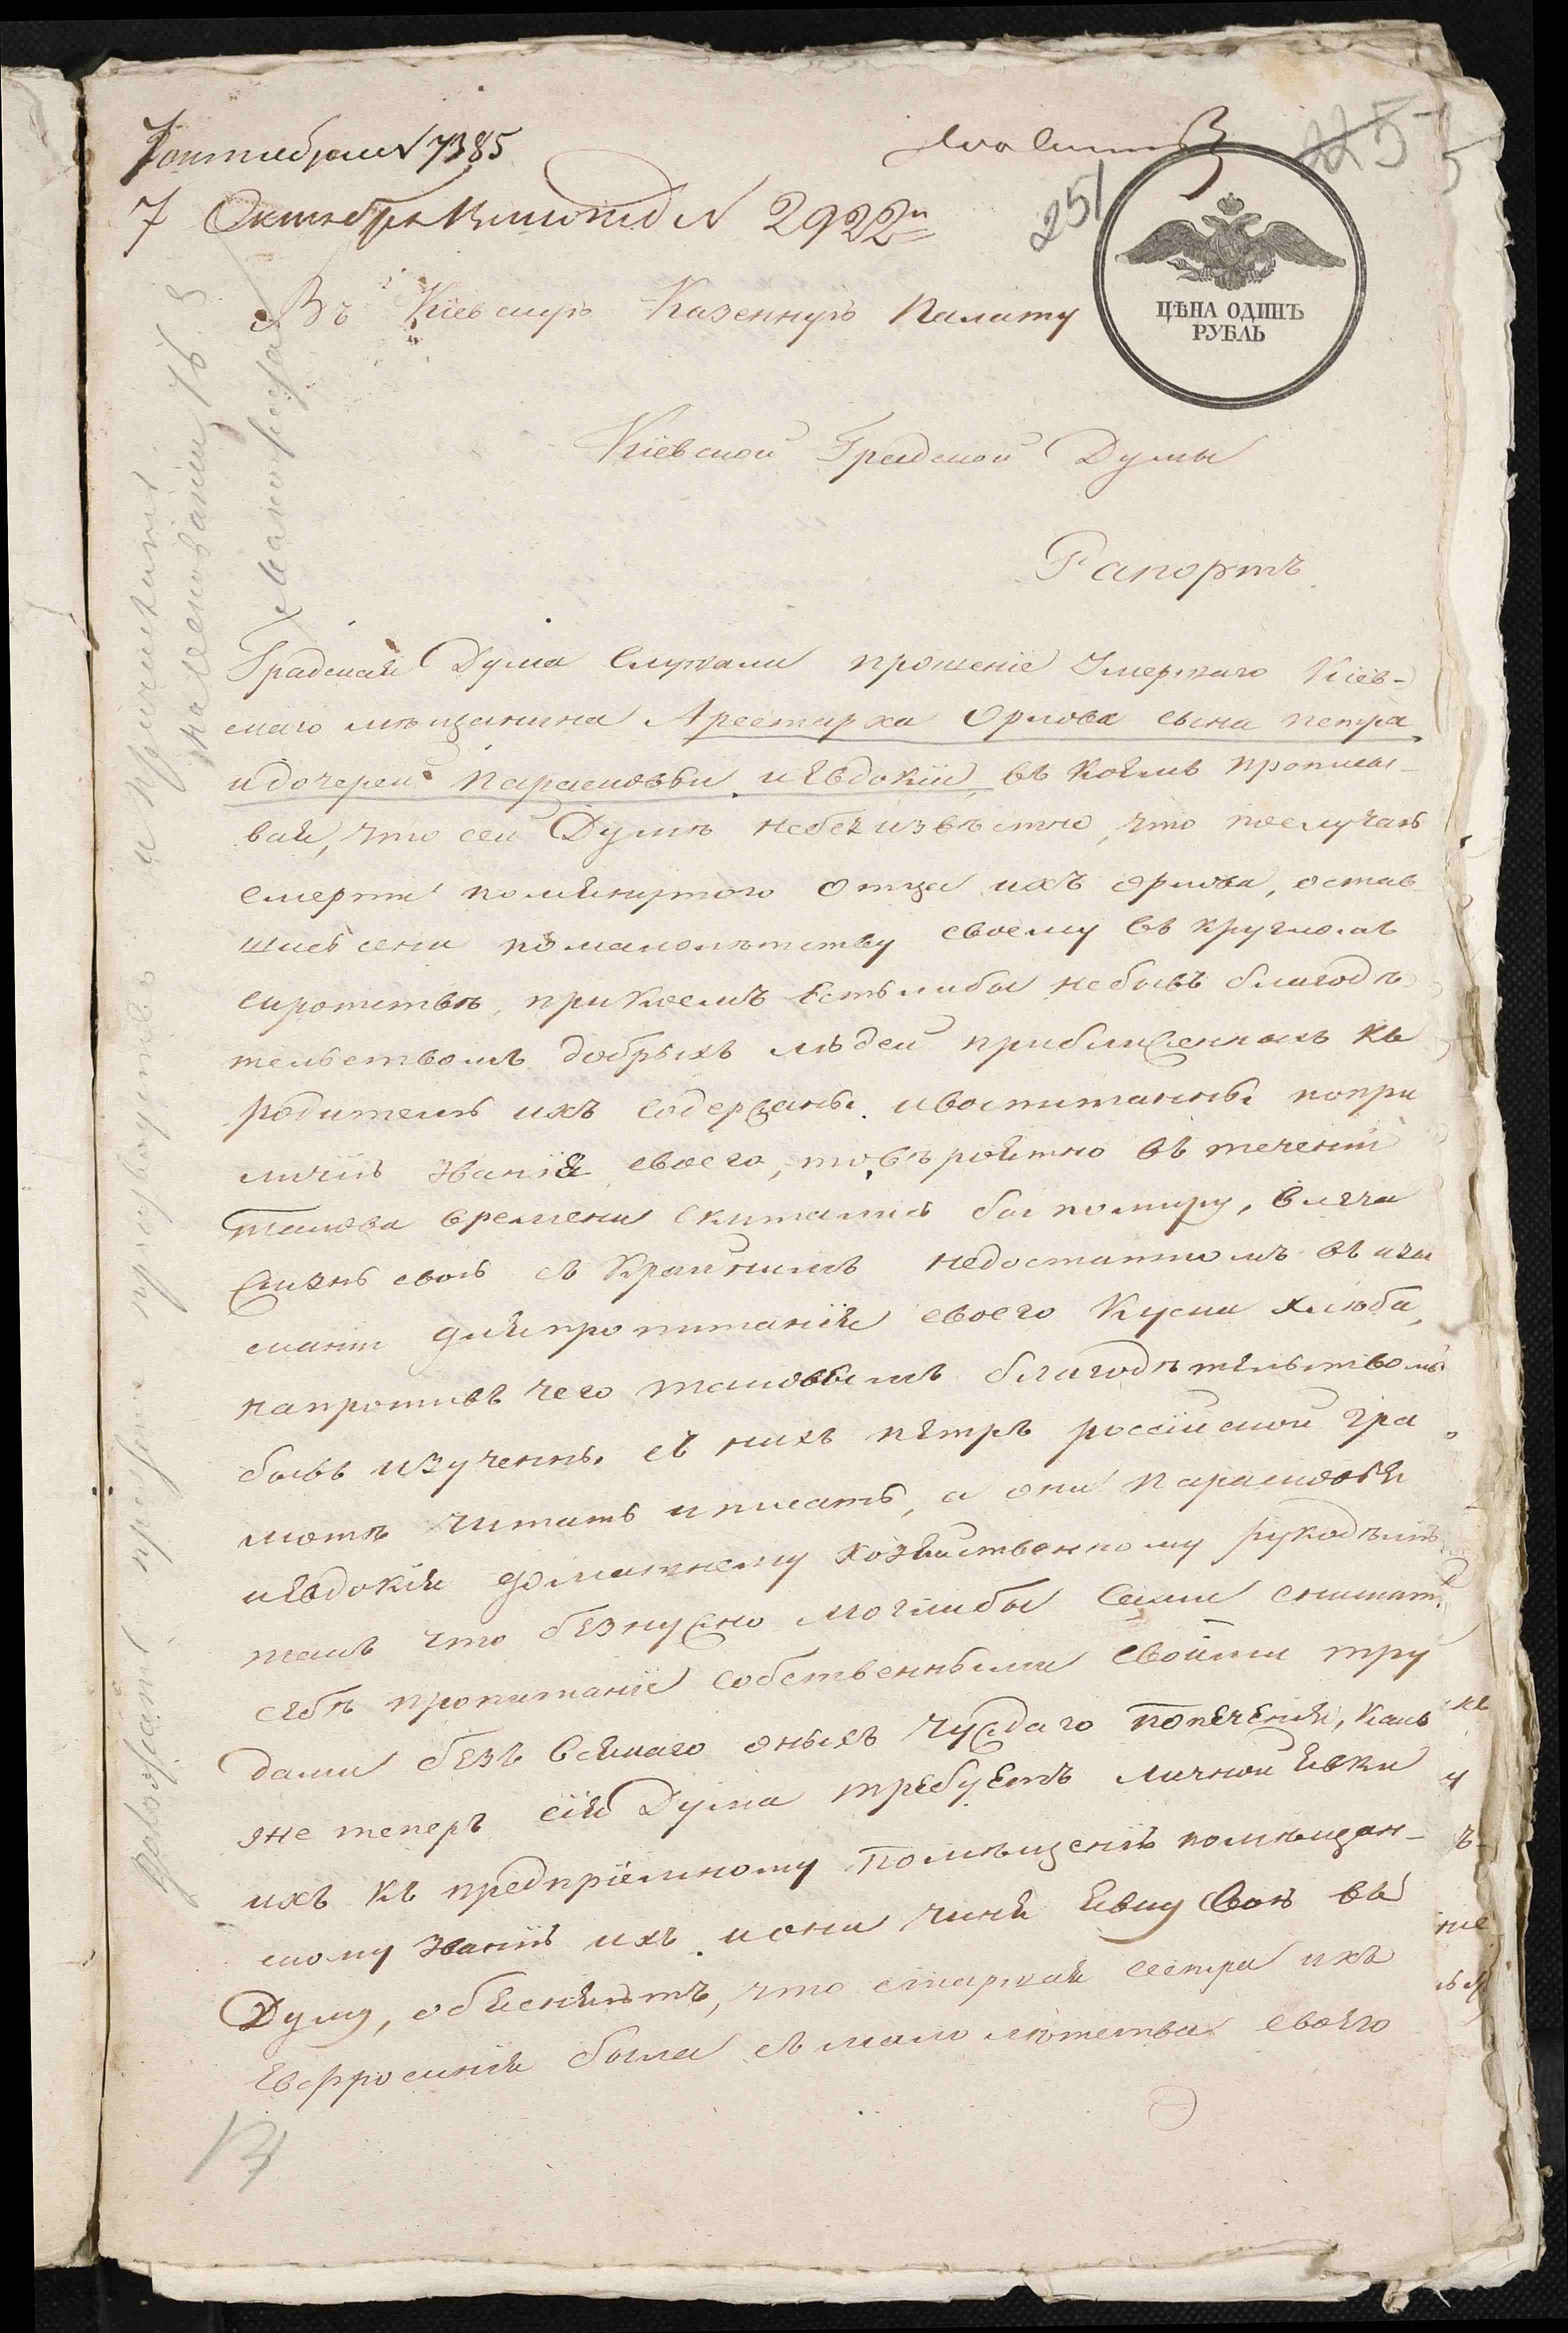 7 октября N 7385
7 Октября N 2922
251
225
5
ЦѢНА ОДИНЪ
РУБЛЬ
Въ Кіевскую Казенную Палату
Кіевской Градской Думы
Рапортъ
Градская Дума Слушали прошеніе Умершаго Кіев-
скаго мѣщанина Арестарха Орлова сына петра
и дочерей Парасковьи и Евдокіи, въ коемъ прописы-
вая, что сей Думѣ небезизвѣстно, что послучаю
смерти помянутого отца ихъ орлова, остав-
шись они помалолѣтству своему въ кругломъ
сиротствѣ, прикоемъ Естьлибы небывъ благодѣ
тельствомъ добрыхъ людей приближенныхъ къ
родителю ихъ содержаны и воспитанны попри
личію званія своего, то вѣроятно въ теченіи
такова времени скитались бы помиру, влеча
жизнь свою съ крайнимъ недостаткомъ въ изы
скани дляпропитанія своего Куска хлѣба,
напротивъ чего таковымъ благодѣтельствомъ
бывъ изученны съ нихъ петръ россійской гра
мотѣ читать иписать, а они Парасковья
иЕвдокія домашнему хозяйственному рукодѣлію
такъ что безнужно моглибы сами снискать
себѣ пропитаніе собственными своими тру
дами безъ всякаго оныхъ чуждаго попеченія, какъ
же теперь сія Дума требуетъ личной явки
ихъ къ предпріемному помѣщенію помѣщан-
скому званію ихъ и они чиня явку свою въ
Думу, объясняютъ, что старшая сестра ихъ
Евфросинія была съ малолѣтства своего